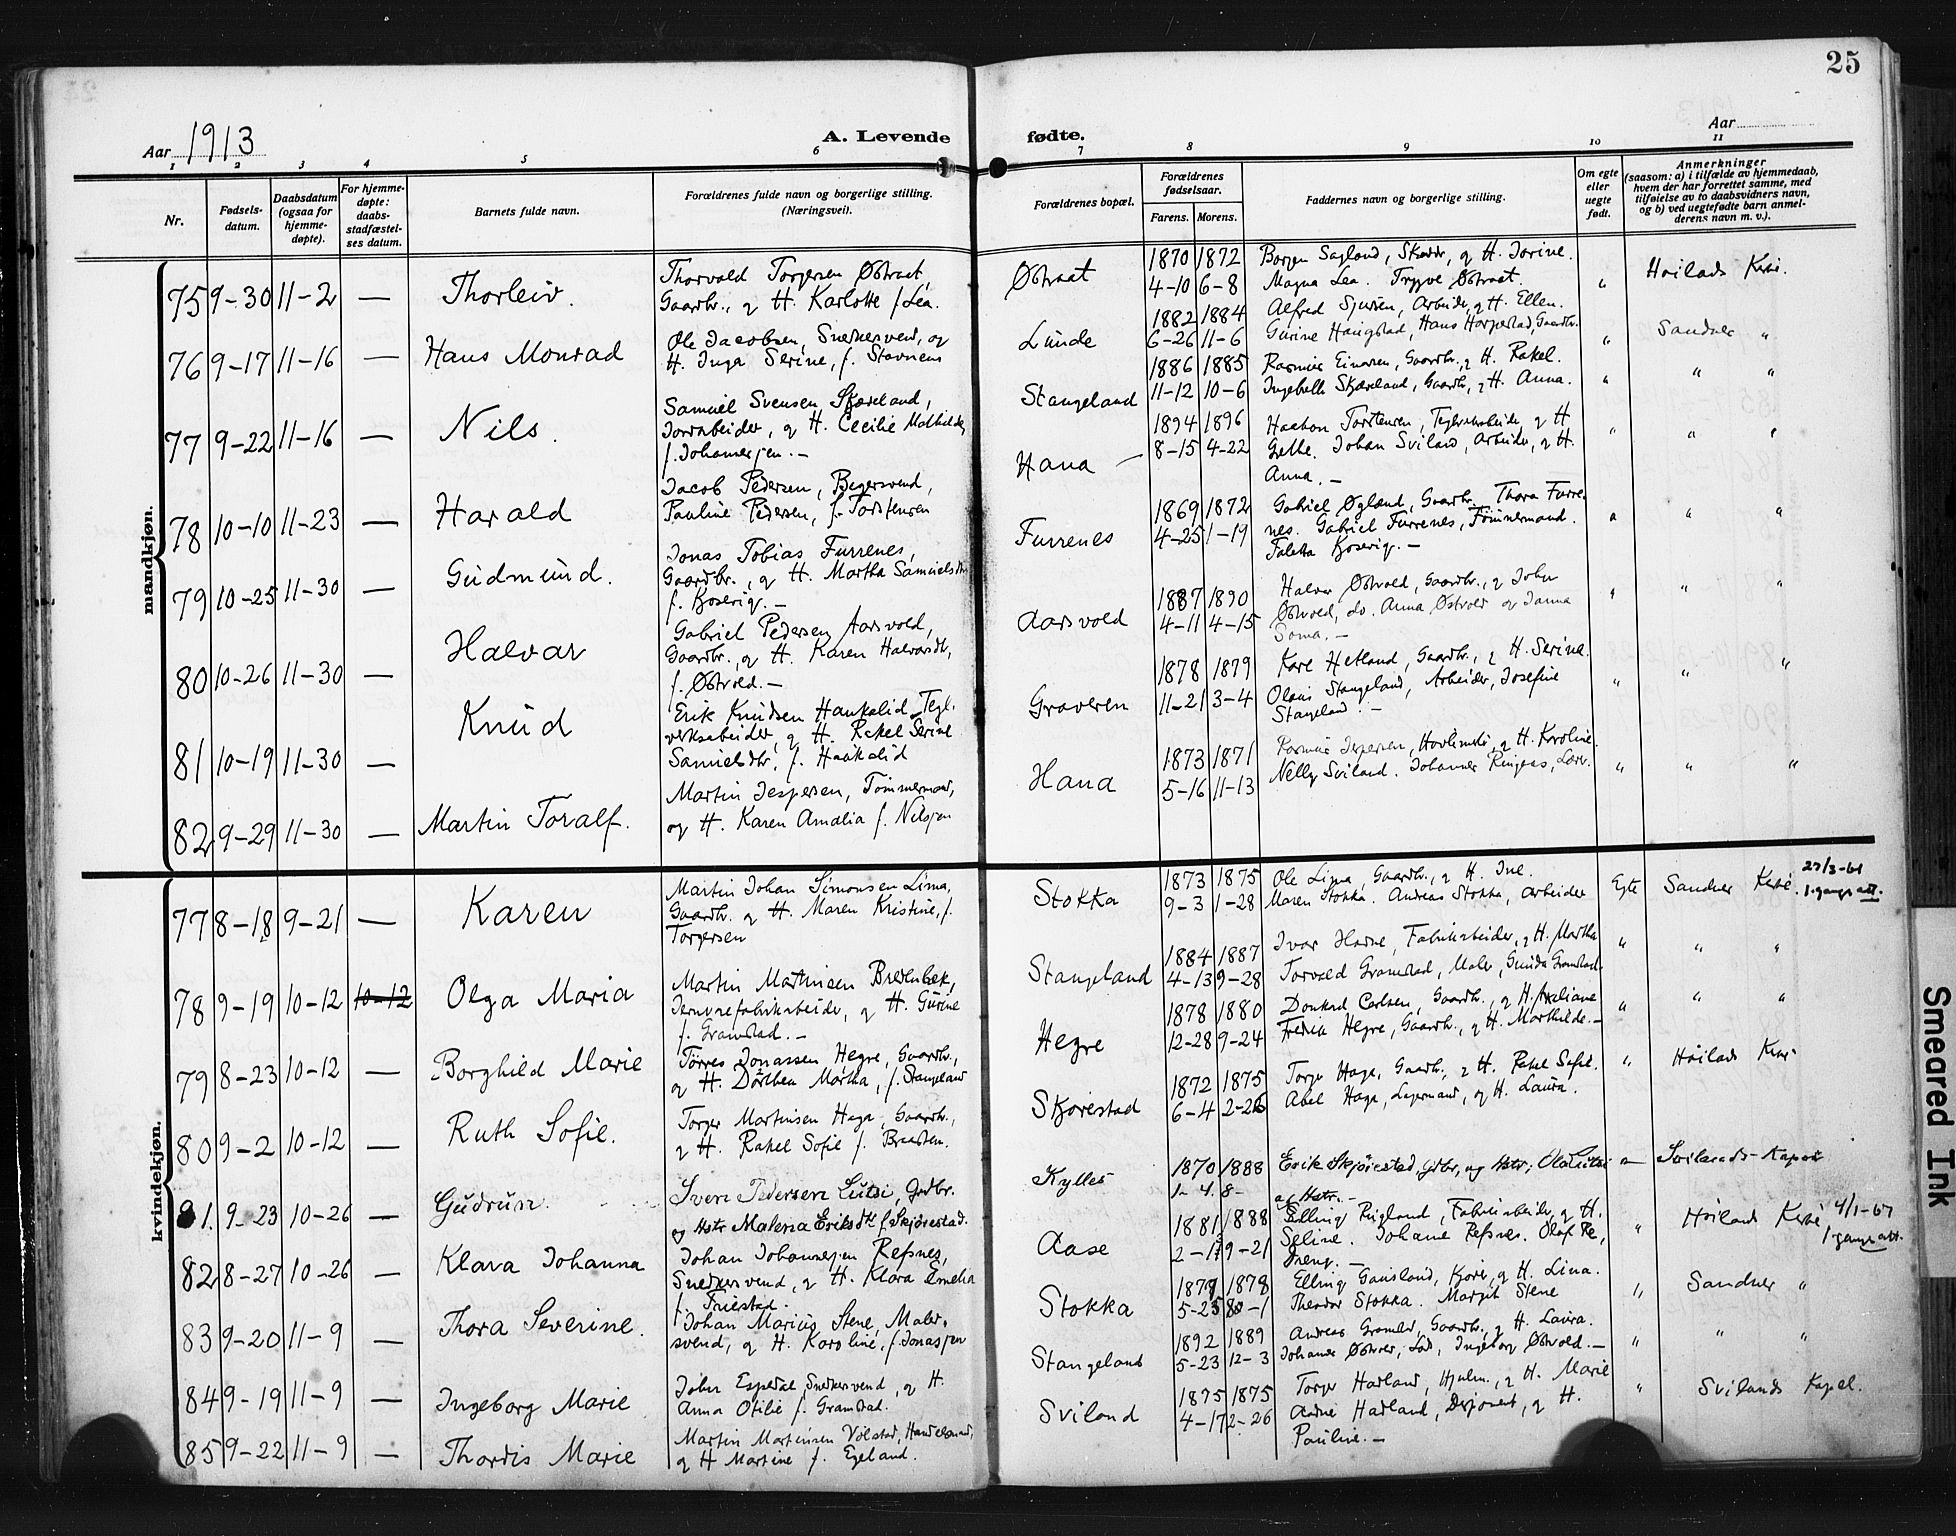 25
Aar 1913
A. Levende fødte.
Aar
1 2 3 4 5 6 7 8 9 10 11
Nr.
Fødsels-
datum.
Daabsdatum
(ogsaa for
hjemme-
døpte).
For hjemme-
døpte:
daabs-
stadfæstel-
ses datum.
Barnets fulde navn.
Forældrenes fulde navn og borgerlige stilling.
(Næringsvei).
Forældrenes bopæl.
Forældrenes
fødselsaar.
Farens. Morens.
Faddernes navn og borgerlige stilling.
Om egte
eller
uegte
født.
Anmerkninger
(saasom: a) i tilfælde av hjemmedaab,
hvem der har forrettet samme, med
tilføielse av to daabsvidners navn,
og b) ved uegtefødte barn anmel-
derens navn m. v.).
mandkjøn.
75 9-30 11-2 — Thorleiv.
Thorvald Torgersen Østraat,
Gaardbr., og H. Karlotte f. Lea.
Østraat
1870 1872
4-10 6-8
Borgen Sagland, og H. Torine.
Magna Lea. Trygve Østraat.
" Høilands Kirke.
76 9-17 11-16 — Hans Monrad
Ole Jacobsen, Snedkersvend, og
H. Inga Serine, f. Stavnem
Lunde
1882 1884
6-26 11-6
Alfred Sjursen, Arbeider, og H. Ellen.
Gurine Haugstad, Hans Gaardbr.
" Sandnes "
77 9-22 11-16 — Nils.
Samuel Svensen Skjæveland,
Jordarbeider, og H. Cecilie Mathilde,
f. Johannesen. —
Stangeland
1886 1885
11-12 10-6
Rasmus Einarsen, Gaardbr., og H. Rakel.
Ingebrett Skjæveland, Gaardbr., og H. Anna.
" " "
78 10-10 11-23 — Harald
Jacob Pedersen, Bøgersvend,
Pauline Pedersen, f. Torstensen
Hana —
1894 1896
8-15 4-22
Haakon Torstensen, Teglverksarbeider, og H.
Grethe. Johan Sviland, Arbeider, og H.
Anna. —
" " "
79 10-25 11-30 — Gudmund.
Jonas Tobias Furrenes,
Gaardbr., og H. Martha Samuelsdtr.
f. —
Furrenes
1869 1872
4-25 1-19
Gabriel Øgland, Gaardbr. Thora Furre-
nes. Gabriel Furrenes, Tømmermand.
" " "
80 10-26 11-30 — Halvar
Gabriel Pedersen Aarsvold,
Gaardbr., og H. Karen Halvorsdtr,
f. Østvold. —
Aarsvold
1887 1890
4-11 4-15
Halvor Østvold, Gaardbr., og John
Østvold, do. Anna Østvold og Janna
Soma. —
" " "
81 10-19 11-30 — Knud
Erik Knudsen Haukalid, Tegl-
verksarbeider, og H. Rakel Serine
Samuelsdtr, f. Haukalid
Graveren
1878 1879
11-21 3-4
Kare Hetland, Gaardbr., og H. Serine.
Olaus Stangeland, Arbeider, Josefine
Stangeland. —
" " "
82 9-29 11-30 — Martin Toralf.
Martin Jespersen, Tømmermand,
og H. Karen Amalia f. Nilsen
Hana
1873 1871
5-16 11-13
Rasmus Jespersen, og H. Karoline.
Nelly Sviland. Johannes
" " "
kvindekjøn.
77 8-18 9-21 — Karen
Martin Johan Simonsen Lima,
Gaardbr. og H. Maren Kristine, f.
Torgersen
Stokka
1873 1875
9-3 1-28
Ole Lima, Gaardbr., og H. Ine.
Maren Stokka. Andreas Stokka, Arbeider
Egte Sandnes Kirke. 27/3-61
1. gangs att.
78 9-19 10-12 10-12 Olga Maria
Martin Mathisen Bredenbek,
Jernvarefabrikarbeider, og H. Gurine
f. Gramstad. —
Stangeland
1884 1887
4-13 9-28
Ivar Hadne, Fabrikarbeider, og H. Martha
Torvald Gramstad, Maler, Gunda Gramstad.
" " "
79 8-23 10-12 — Borghild Marie
Tørres Jonassen Hegre, Gaardbr.,
og H. Dorthea Martha, f. Stangeland
Hegre
1878 1880
12-28 9-24
Carlsen, Gaardbr., og H.
Fredrik Hegre, Gaardbr., og H. Marthilde. —
" " "
80 9-2 10-12 — Ruth Sofie.
Torger Martinsen Haga, Gaardbr.,
og H. Rakel Sofie f. Braasten.
Skjørestad
1872 1875
6-4 2-26
Torger Haga, Gaardbr., og H. Rakel Sofie.
Abel Haga, Lagermand, og H. Laura.
" Høilands Kirke
81. 9-23 10-26 — Gudrun
Sven Pedersen Lutsi, Grdbr.
og Hstr Malena Eriksdtr f. Skjørestad.
Kylles
1870 1888
1-4. 8-
Erik Skjørestad, grdbr, og Hstr; Ola Lutsi
og Hstr. —
" Svilands Kapel
82 8-27 10-26 — Klara Johanna
Johan Johannesen Refsnes,
Snedkersvend, og H. Klara Emelia
f. Friestad.
Aase
1881 1888
2-17 9-21
Elling Rugland, Fabrikarbeider, og H.
Seline. Johanne Refsnes. Olaf Re,
Dreng. —
" Høilands Kirke 4/1-67
1 gangs att.
83 9-20 11-9 — Thora Severine.
Johan Marius Stene, Maler-
svend, og H. Karoline, f. Jonassen
Stokka
1879 1878
5-25 8-1
Elling Gausland, Kjører, og H. Lina.
Theodor Stokka. Margit Stene
" Sandnes "
84 9-19 11-9 — Ingeborg Marie
John Espedal, Snedkersvend, og H.
Anna Otilie f. Gramstad.
Stangeland
1892 1889
5-23 12-3
Andreas Gramstad, Gaardbr., og H. Laura.
Johannes Østvold, Ingeborg Østvold. —
" " "
85 9-22 11-9 — Thordis Marie
Martin Martinsen Vølstad, Handelsmand,
og H Martine f. Egeland.
Sviland
1875 1875
4-17 2-26
Torger Hadland, og H. Marie
Aadne Hadland, Disponent, og H.
Pauline. —
" Svilands Kapel.
Smeared Ink